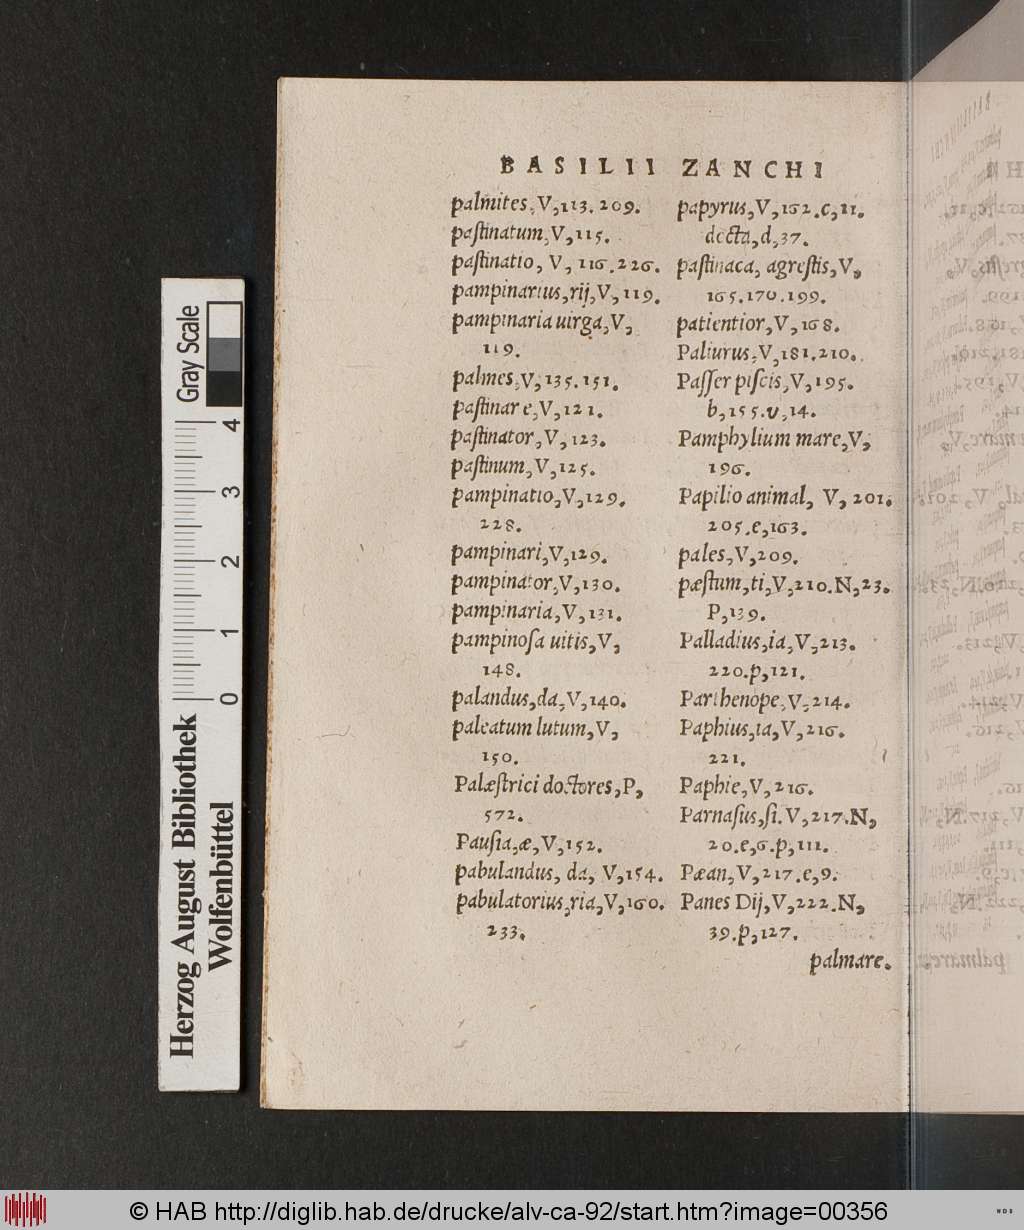 BASILII ZANCHI
palmites, V, 113. 209.
paſtinatum, V, 115.
paſtinatio, V, 116. 226.
pampinarius, rij, V, 119.
pampinaria uirga, V,
119.
palmes, V, 135. 151.
paſtinare, V, 121.
paſtinator, V, 123.
paſtinum, V, 125.
pampinatio, V, 129.
228.
pampinari, V, 129.
pampinator, V, 130.
pampinaria, V, 131.
pampinoſa uitis, V,
148.
palandus, da, V, 140.
paleatum lutum, V,
150.
Palæſtrici doctores, P,
572.
Pauſia, æ, V, 152.
pabulandus, da, V, 154.
pabulatorius, ria, V, 160.
233.
papyrus, V, 162. c, 11.
decta, d, 37.
paſtinaca, agreſtis, V,
165. 170. 199.
patientior, V, 168.
Paliurus, V, 181. 210.
Paſſer piſcis, V, 195.
b, 155. v, 14.
Pamphylium mare, V,
196.
Papilio animal, V, 201.
205. e, 163.
pales, V, 209.
pæſtum, ti, V, 210. N, 23.
P, 139.
Palladius, ia, V, 213.
220. p, 121.
Parthenope, V, 214.
Paphius, ia, V, 216.
221.
Paphie, V, 216.
Parnaſus, ſi. V, 217. N,
20. e, 6. p, 111.
Pæan, V, 217. e, 9.
Panes Dij, V, 222. N,
39. p, 127.
palmare.
Gray Scale
4
3
2
1
0
Herzog August Bibliothek
Wolfenbüttel
© HAB http://diglib.hab.de/drucke/alv-ca-92/start.htm?image=00356
WDB